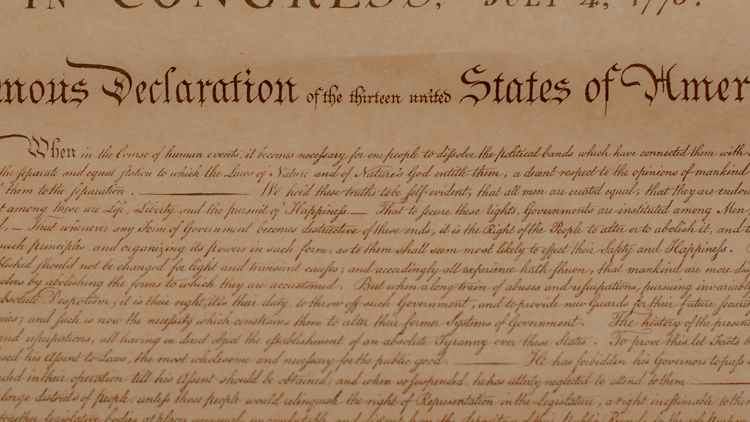 IN CONGRESS, JULY 4, 1776.
mous Declaration of the thirteen united States of Amer
When in the Course of human events, it becomes necessary for one people to dissolve the political bands which have connected them with
the separate and equal station to which the Laws of Nature and of Nature's God entitle them, a decent respect to the opinions of mankind
them to the separation. ——— We hold these truths to be self-evident, that all men are created equal, that they are endow
t among these are Life, Liberty and the pursuit of Happiness — That to secure these rights, Governments are instituted among Men
— That whenever any Form of Government becomes destructive of these ends, it is the Right of the People to alter or to abolish it, and to
such principles and organizing its powers in such form, as to them shall seem most likely to effect their Safety and Happiness.
blished should not be changed for light and transient causes; and accordingly all experience hath shewn, that mankind are more dis
selves by abolishing the forms to which they are accustomed. But when a long train of abuses and usurpations, pursuing invariably
absolute Despotism, it is their right, it is their duty, to throw off such Government, and to provide new Guards for their future securi
nies; and such is now the necessity which constrains them to alter their former Systems of Government. The history of the present
and usurpations, all having in direct object the establishment of an absolute Tyranny over these States. To prove this, let Facts b
sed his Assent to Laws, the most wholesome and necessary for the public good. ——— He has forbidden his Governors to pass
ded in their operation till his Assent should be obtained; and when so suspended, he has utterly neglected to attend to them
large districts of people, unless those people would relinquish the right of Representation in the Legislature, a right inestimable to them
together legislative bodies at places unusual, uncomfortable, and distant from the depository of their Public Records,